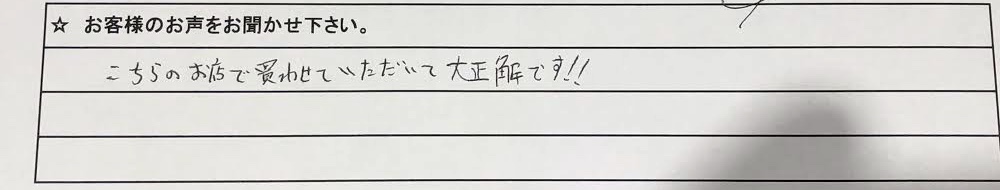 ☆ お客様のお声をお聞かせ下さい。
こちらのお店で買わせていただいて大正解です!!